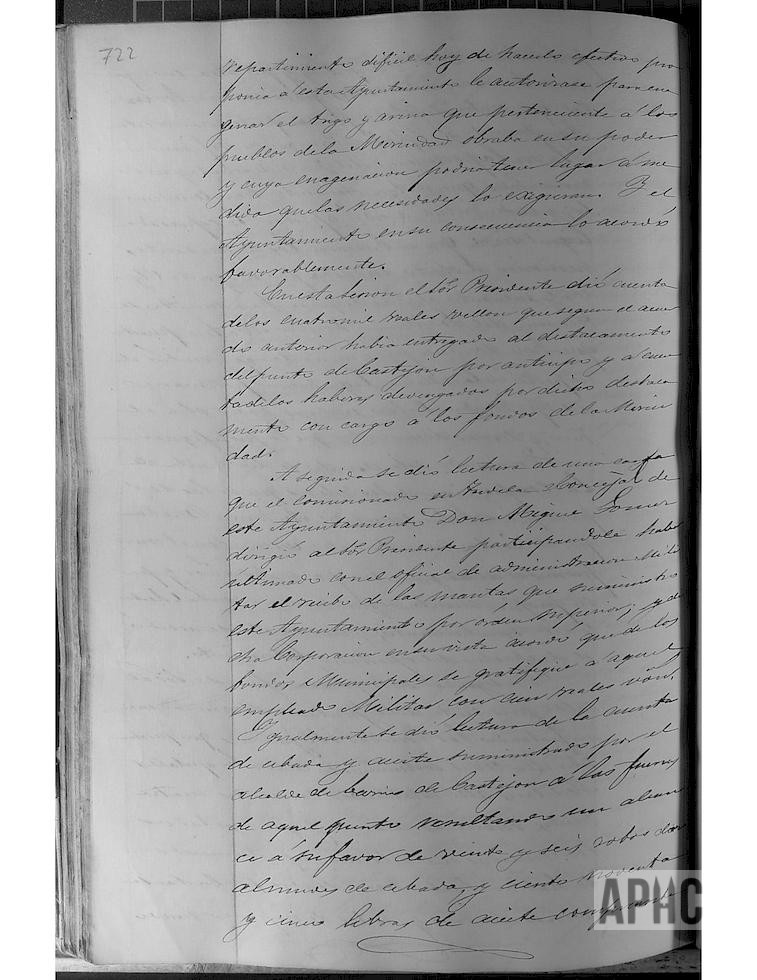 722
repartimiento difícil hoy de hacerlo efectivo pro
ponia á este Ayuntamiento le autorizase para ena
genar el trigo y arina que perteneciente á los
pueblos de la Merindad obraba en su poder
y cuya enagenacion podria tener lugar á me
dida que las necesidades lo exigieran. Y el
Ayuntamiento en su consecuencia lo acordó
favorablemente.
En esta sesion el Sor Presidente dió cuenta
de los cuatro mil reales vellon que segun el acuer
do anterior habia entregado al destacamento
del punto de Castejon por anticipo y á cuen
ta de los haberes devengados por dicho destaca
mento con cargo á los fondos de la Merin
dad.
A seguida se dió lectura de una carta
que el comisionado en Tudela y Concejal de
este Ayuntamiento Don Miguel
dirigió al Sor Presidente participandole haber
ultimado con el oficial de administracion Mili
tar el recibo de las mantas que suministró
este Ayuntamiento por órden superior; y di
cha Corporacion en su vista acordó que de los
fondos Municipales se gratifique á aquel
empleado Militar con cien reales von.
Igualmente se dió lectura de la cuenta
de cebada y aceite suministrado por el
alcalde de barrio de Castejon á las fuerzas
de aquel punto resultando un alcan
ce á su favor de veinte y seis robos dos
almudes de cebada y ciento noventa
y cinco libras de aceite
APHC